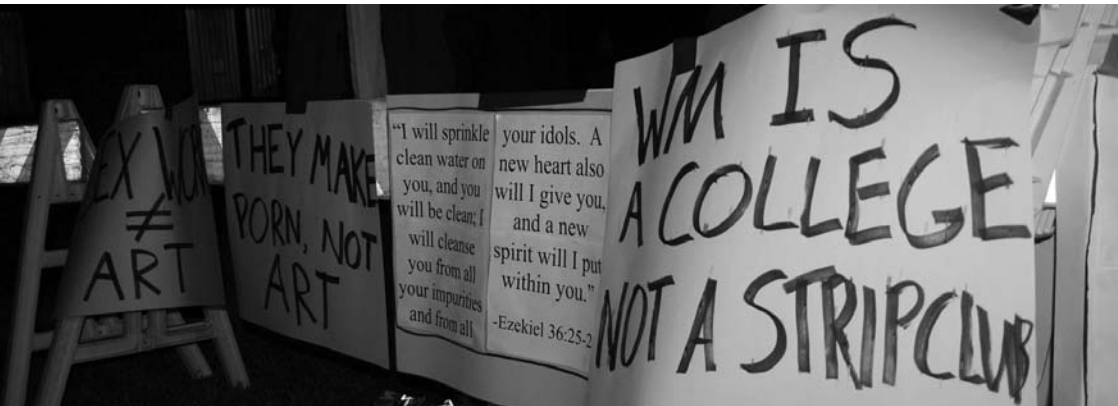 ART
≠
THEY MAKE
PORN, NOT
ART
“I will sprinkle
clean water on
you, and you
will be clean; I
will cleanse
you from all
your impurities
and from all
your idols. A
new heart also
will I give you,
and a new
spirit will I put
within you.”
-Ezekiel 36:25-2
WM IS
A COLLEGE
NOT A STRIPCLUB